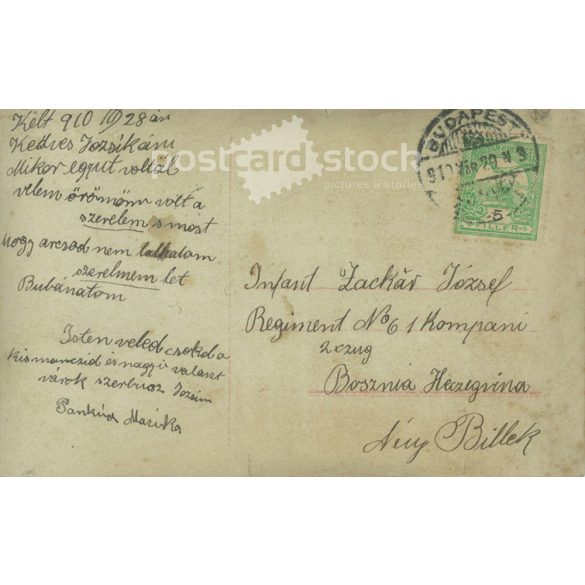 Kelt 910 19 28 án
Kedves Jozsikám
Mikor egyut voltál
velem örömöm vólt a
szerelem s most
hogy arczod nem lathatom
szerelmem let
Bubánatom
Isten veled csokol a
kis manczid és nagyi valaszt
várok szerbusz Jozsim
Mariska
postcard stock
pictures & stories
BUDAPEST
5
FILLÉR
Infant Zackár József
Regiment No 61 Kompani
2 zug
Bosznia Herzegvina
Billek